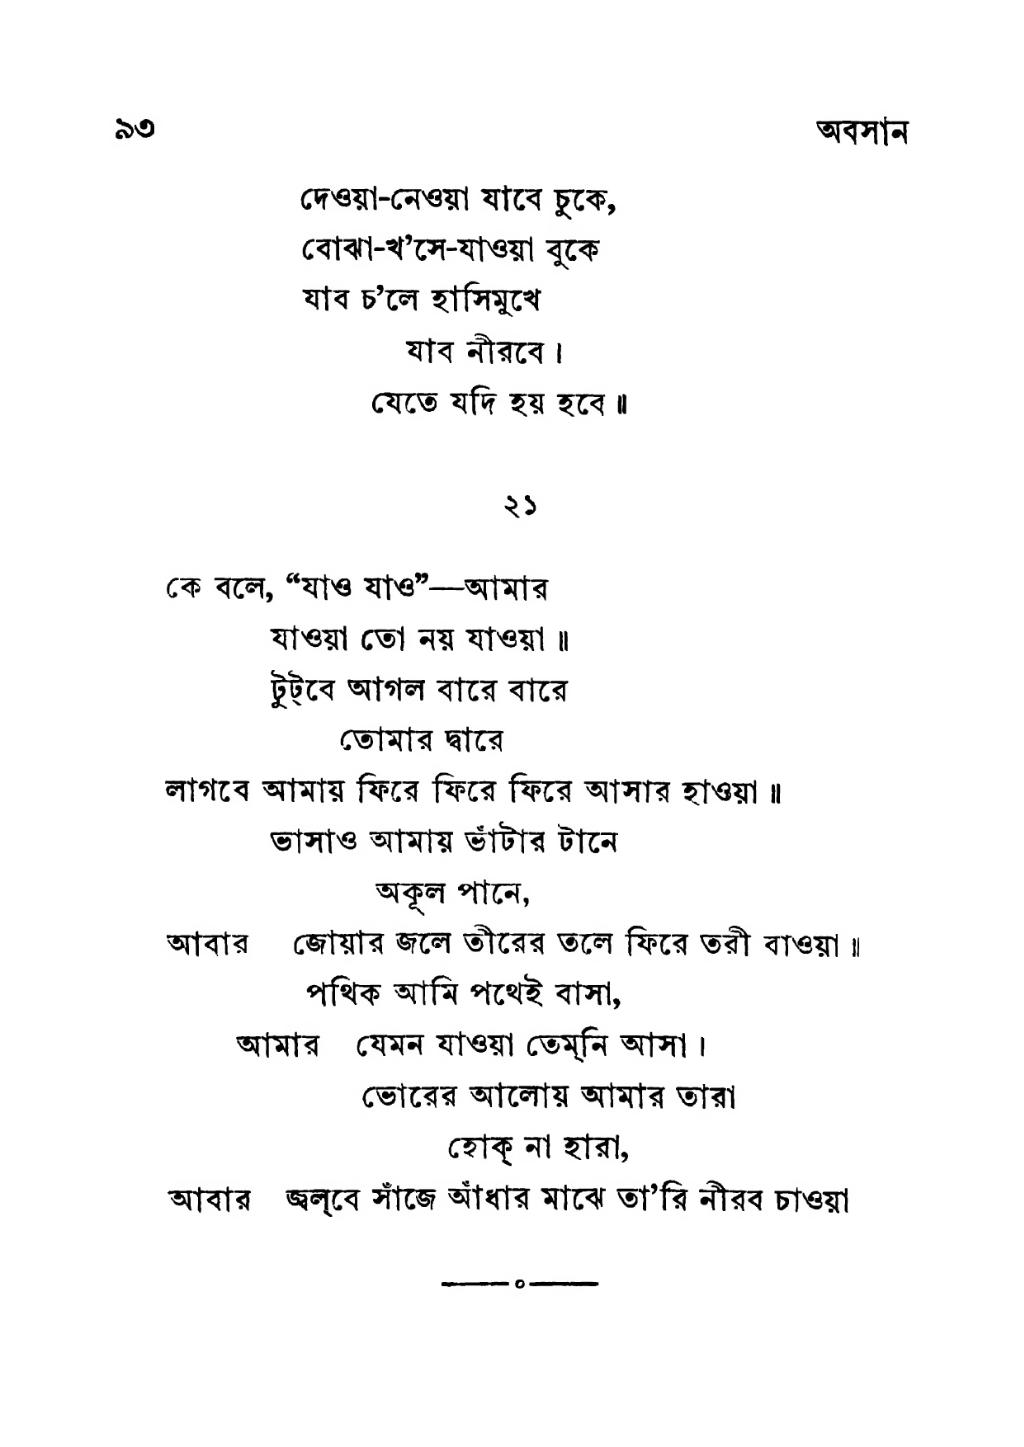 ৯৩ অবসান
দেওয়া-নেওয়া যাবে চুকে,
বোঝা-খ’সে-যাওয়া বুকে
যাব চ’লে হাসিমুখে
যাব নীরবে।
যেতে যদি হয় হবে॥
২১
কে বলে, “যাও যাও”—আমার
যাওয়া তো নয় যাওয়া॥
টুট্‌বে আগল বারে বারে
তোমার দ্বারে
লাগবে আমায় ফিরে ফিরে ফিরে আসার হাওয়া॥
ভাসাও আমায় ভাঁটার টানে
অকূল পানে,
আবার জোয়ার জলে তীরের তলে ফিরে তরী বাওয়া॥
পথিক আমি পথেই বাসা,
আমার যেমন যাওয়া তেম্‌নি আসা।
ভোরের আলোয় আমার তারা
হোক্‌ না হারা,
আবার জ্বল্‌বে সাঁজে আঁধার মাঝে তা’রি নীরব চাওয়া